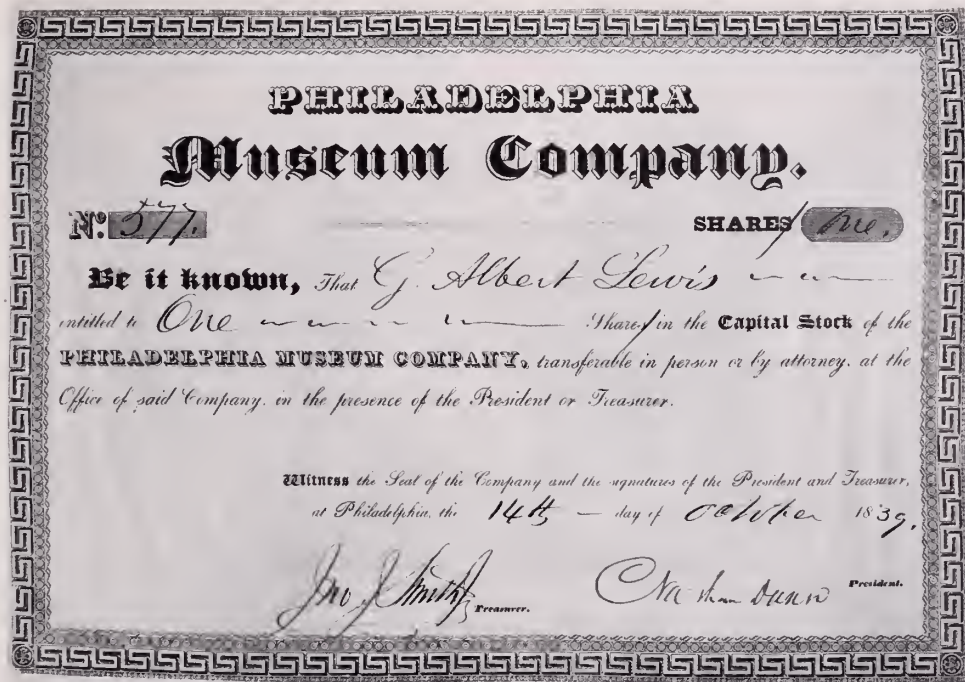 PHILADELPHIA
Museum Company.
No. 577. SHARES One.
Be it known, That G. Albert Lewis
intitled to One Shares in the Capital Stock of the
PHILADELPHIA MUSEUM COMPANY, transferable in person or by attorney, at the
Office of said Company, in the presence of the President or Treasurer.
Witness the Seal of the Company and the signatures of the President and Treasurer,
at Philadelphia, the 14th day of October 1839.
Jno J Smith Jr Treasurer. Nathan Dunn President.